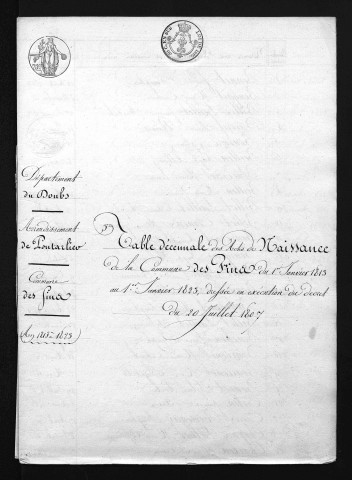 Département
du Doubs
Arrondissement
de Pontarlier
Commune
des fins
(An 1813 - 1823)
Table décennale des Actes de Naissance
de la Commune des Fins du 1er Janvier 1813
au 1er Janvier 1823, dressée en execution du décret
du 20 Juillet 1807